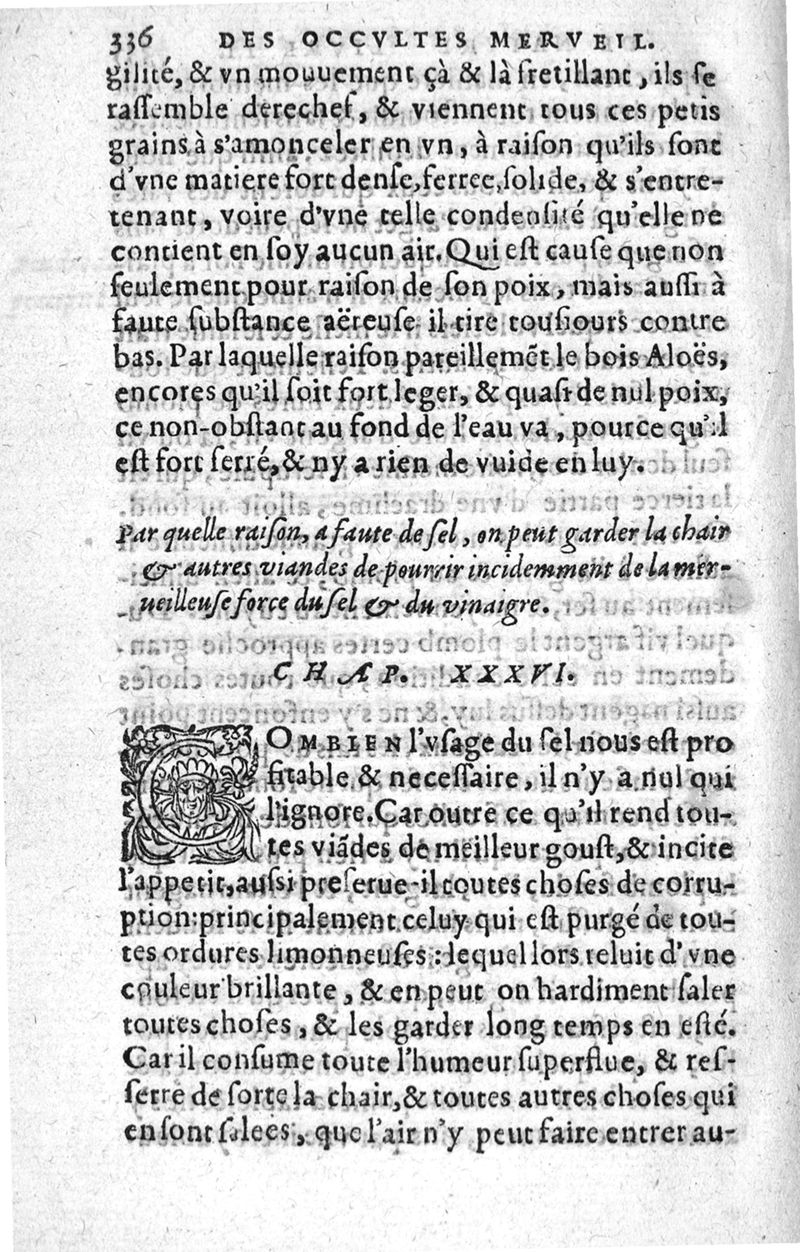 336 DES OCCVLTES MERVEIL.
gilité, & vn mouuement çà & là fretillant, ils ſe
raſſemble derechef, & viennent tous ces petis
grains à s'amonceler en vn, à raiſon qu'ils ſont
d'vne matiere fort denſe, ferree, ſolide, & s'entre-
tenant, voire d'vne telle condenſité qu'elle ne
contient en ſoy aucun air. Qui eſt cauſe que non
ſeulement pour raiſon de ſon poix, mais auſſi à
faute ſubſtance aëreuſe il tire touſiours contre
bas. Par laquelle raiſon pareillemẽt le bois Aloës,
encores qu'il ſoit fort leger, & quaſi de nul poix,
ce non-obſtant au fond de l'eau va, pource qu'il
eſt fort ſerré, & ny a rien de vuide en luy.
Par quelle raiſon, a faute de ſel, on peut garder la chair
& autres viandes de pourrir incidemment de la mer-
ueilleuſe force du ſel & du vinaigre.
CHAP. XXXVI.
COMBIEN l'vſage du ſel nous eſt pro
fitable & neceſſaire, il n'y a nul qui
l'ignore. Car outre ce qu'il rend tou-
tes viãdes de meilleur gouſt, & incite
l'appetit, auſsi preſerue-il toutes choſes de corru-
ption: principalement celuy qui eſt purgé de tou-
tes ordures limonneuſes: lequel lors reluit d'vne
couleur brillante, & en peut on hardiment ſaler
toutes choſes, & les garder long temps en eſté.
Car il conſume toute l'humeur ſuperflue, & reſ-
ſerre de ſorte la chair, & toutes autres choſes qui
en ſont ſalees, que l'air n'y peut faire entrer au-